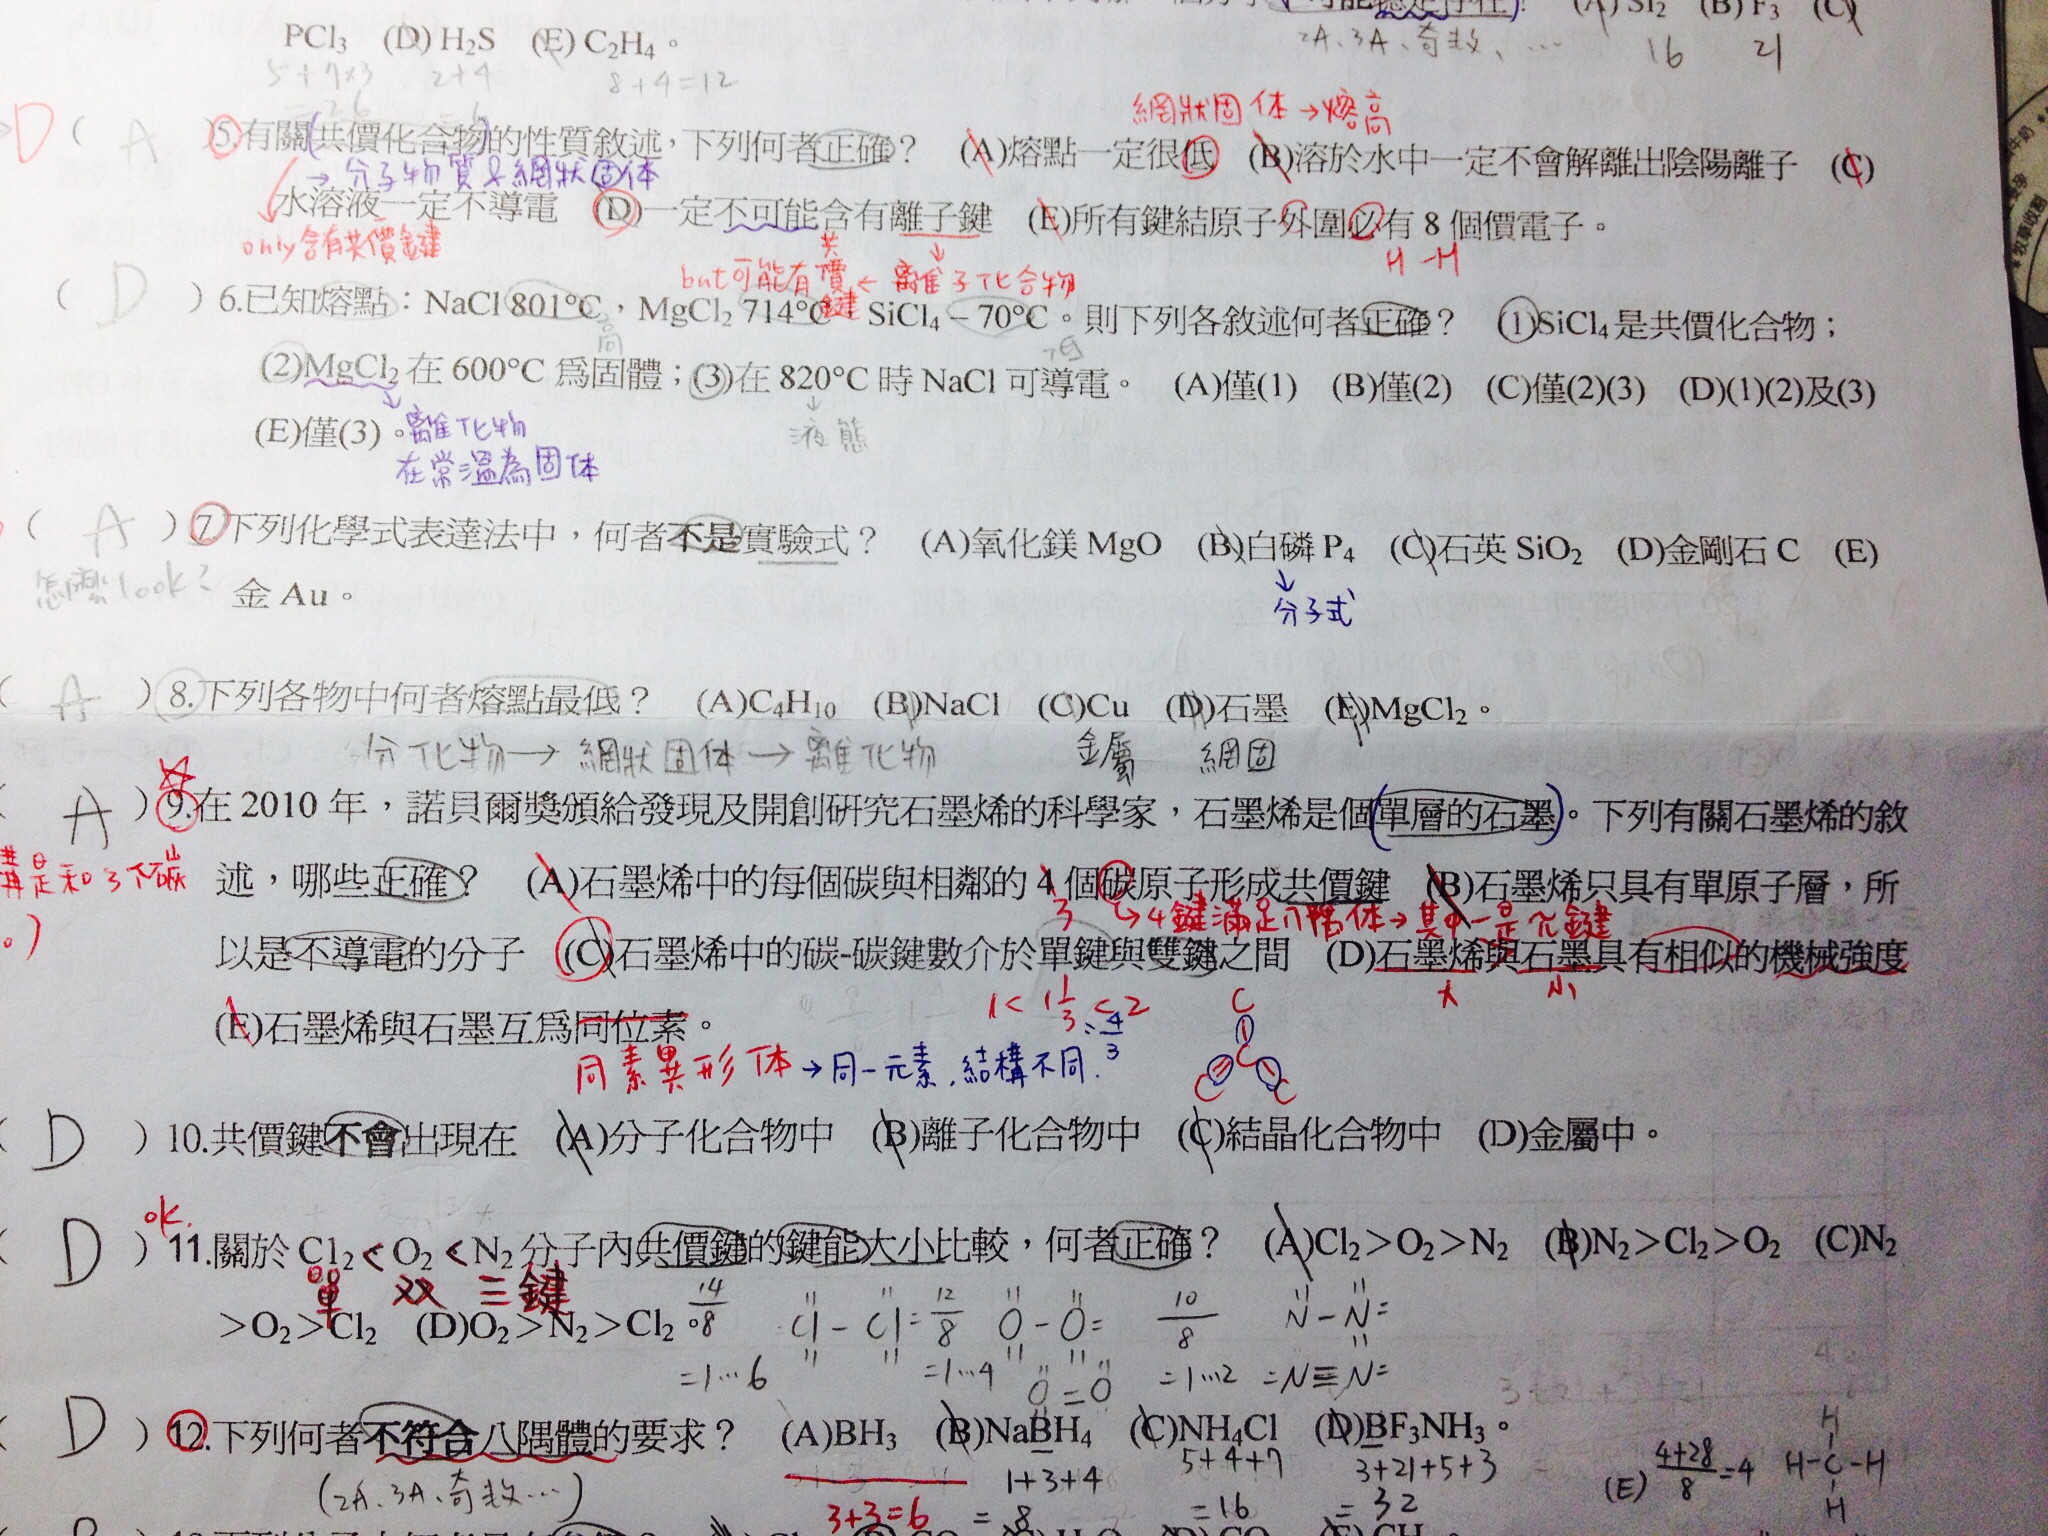 PCl₃ (D) H₂S (E) C₂H₄。
2A、3A、奇数、… 16 21
5+7×3 2+4 8+4=12
=26 =6
網狀固体→熔高
D ( A )5.有關(共價化合物)的性質敘述，下列何者正確？ (A)熔點一定很低 (B)溶於水中一定不會解離出陰陽離子 (C)
→分子物質&網狀固体
水溶液一定不導電 (D)一定不可能含有離子鍵 (E)所有鍵結原子外圍必有 8 個價電子。
only含有共價鍵 but可能有共價鍵←離子化合物 H-H
( D )6.已知熔點：NaCl 801°C，MgCl₂ 714°C SiCl₄－70°C。則下列各敘述何者正確？ (1)SiCl₄是共價化合物；
高 低
(2)MgCl₂在 600°C 爲固體；(3)在 820°C 時 NaCl 可導電。 (A)僅(1) (B)僅(2) (C)僅(2)(3) (D)(1)(2)及(3)
(E)僅(3)。離化物 液態
在常溫為固体
( A )7.下列化學式表達法中，何者不是實驗式？ (A)氧化鎂 MgO (B)白磷 P₄ (C)石英 SiO₂ (D)金剛石 C (E)
怎麼look? 金 Au。 分子式
( A )8.下列各物中何者熔點最低？ (A)C₄H₁₀ (B)NaCl (C)Cu (D)石墨 (E)MgCl₂。
分化物→網狀固体→離化物 金屬 網固
( A )9.在 2010 年，諾貝爾獎頒給發現及開創研究石墨烯的科學家，石墨烯是個(單層的石墨)。下列有關石墨烯的敘
述，哪些正確？ (A)石墨烯中的每個碳與相鄰的 4 個碳原子形成共價鍵 (B)石墨烯只具有單原子層，所
是和3个碳 3 →4鍵滿足八隅体→其中一是π鍵
以是不導電的分子 (C)石墨烯中的碳-碳鍵數介於單鍵與雙鍵之間 (D)石墨烯與石墨具有相似的機械強度
1<1⅓<2 大 小
(E)石墨烯與石墨互爲同位素。 =4/3 C
同素異形体→同一元素，結構不同. C C C
( D )10.共價鍵不會出現在 (A)分子化合物中 (B)離子化合物中 (C)結晶化合物中 (D)金屬中。
ok.
( D )11.關於 Cl₂<O₂<N₂分子內共價鍵的鍵能大小比較，何者正確？ (A)Cl₂＞O₂＞N₂ (B)N₂＞Cl₂＞O₂ (C)N₂
單 双 三鍵
＞O₂＞Cl₂ (D)O₂＞N₂＞Cl₂。 14/8 Cl-Cl= 12/8 O-O= 10/8 N-N=
=1…6 =1…4 O=O =1…2 =N≡N=
( D )12.下列何者不符合八隅體的要求？ (A)BH₃ (B)NaBH₄ (C)NH₄Cl (D)BF₃NH₃。
(2A、3A、奇数…) 3+3=6 1+3+4 =8 5+4+7 =16 3+21+5+3 =32 (E) 4+28/8=4 H-C-H H H